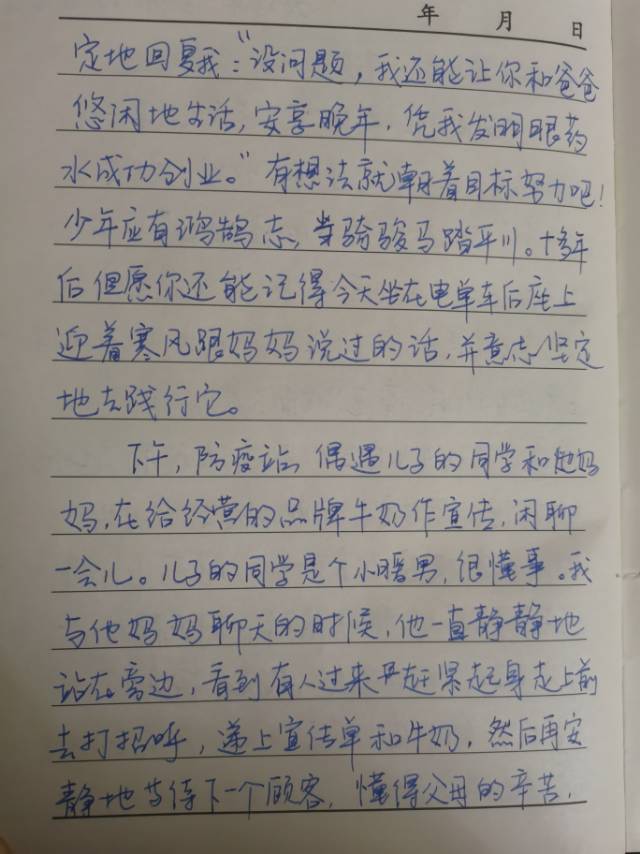 年 月 日
定地回复我：“没问题，我还能让你和爸爸
悠闲地生活，安享晚年，凭我发明眼药
水成功创业。”有想法就朝着目标努力吧！
少年应有鸿鹄志，当骑骏马踏平川。十多年
后但愿你还能记得今天坐在电单车后座上
迎着寒风跟妈妈说过的话，并意志坚定
地去践行它。
下午，防疫站，偶遇儿子的同学和他妈
妈，在给经营的品牌牛奶作宣传，闲聊
一会儿。儿子的同学是个小暖男，很懂事。我
与他妈妈聊天的时候，他一直静静地
站在旁边，看到有人过来 赶紧起身走上前
去打招呼，递上宣传单和牛奶，然后再安
静地等待下一个顾客，懂得父母的辛苦，